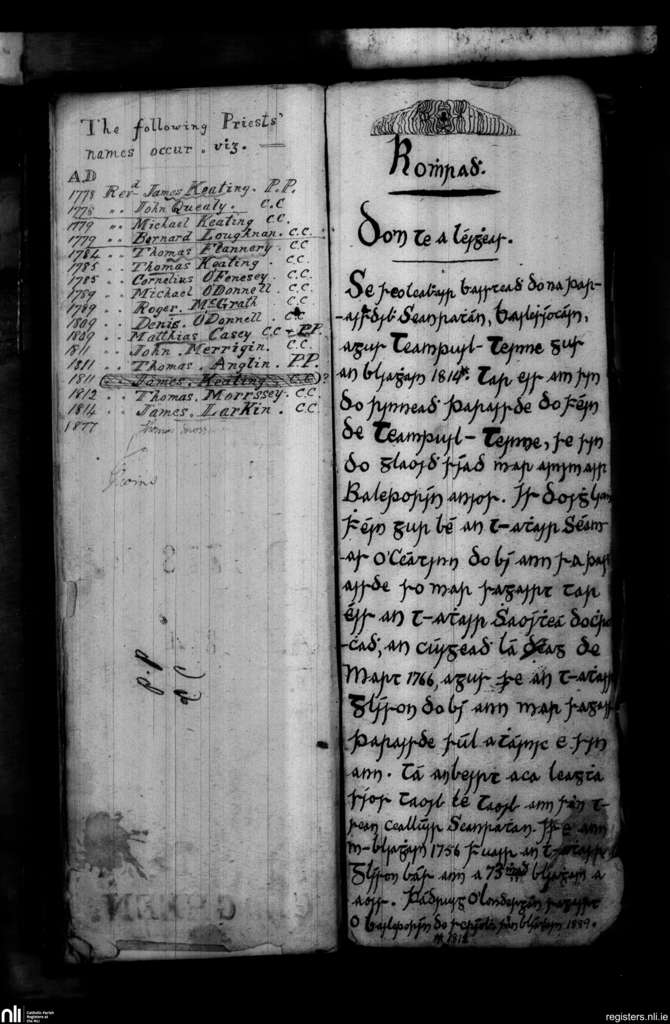 The following Priests'
names occur. viz.
A.D
1778 Revd James Keating. P.P.
1778 " John Quealy. C.C
1779 " Michael Keating C.C.
1779 " Bernard Loughnan. C.C.
1784 " Thomas Flannery. C.C.
1785 " Thomas Keating. C.C.
1785 " Cornelius O'Fenesey. C.C.
1789 " Michael O'Donnell C.C.
1789 " Roger. McGrath C.C.
1809 " Denis. O'Donnell. C.C
1809 " Matthias Casey C.C & P.P.
1811 " John. Merrigin. C.C.
1811 " Thomas. Anglin. P.P.
1811 James. Keating C.C ?
1812 " Thomas. Morrssey. C.C.
1814 " James. Larkin. C.C.
1877
P.P
C C
Roṁrad.
Don te a léiġear.
Se leabair baistead do na par-
Seanraṫán,
agus Teampuil-Teinne gur
an bliaġain 1814. Tar eis am sin
do rinnead paraisde do féin
de Teampuil-Teinne, se sin
do glaoid siad mar ainm air
Baleporín anios. Is doiġ liom
féin gur bé an t-aṫair Séam-
as O'Céatinn do bí ann sa par
aisde so mar sagairt tar
éis an t-aṫair
an cúigead lá deag de
Mart 1766, agus se an t-aṫair
Glíson do bí ann mar sagairt
Paraisde súl a táinic e sin
ann. Tá aca leagta
síos taoib lé taoib ann sán t-
sean Seanraṫan. Is e ann
m-bliaġain 1756 fuair an t-aṫair
Glíson bás ann a 73 bliaġain a
aois. Pádruig O'Londergin sagairt
O Baleporín do scríob sán bliaġain 1889.